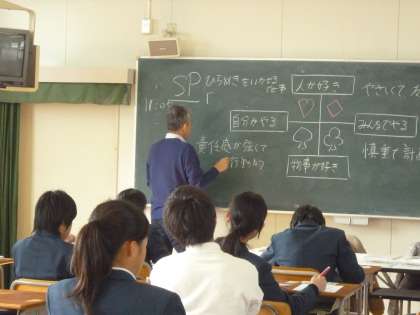 SP
ひらめきをいかす
仕事
人が好き
やさしくて
自分がやる
みんなでやる
責任感が強くて
行動的
物事が好き
慎重で計